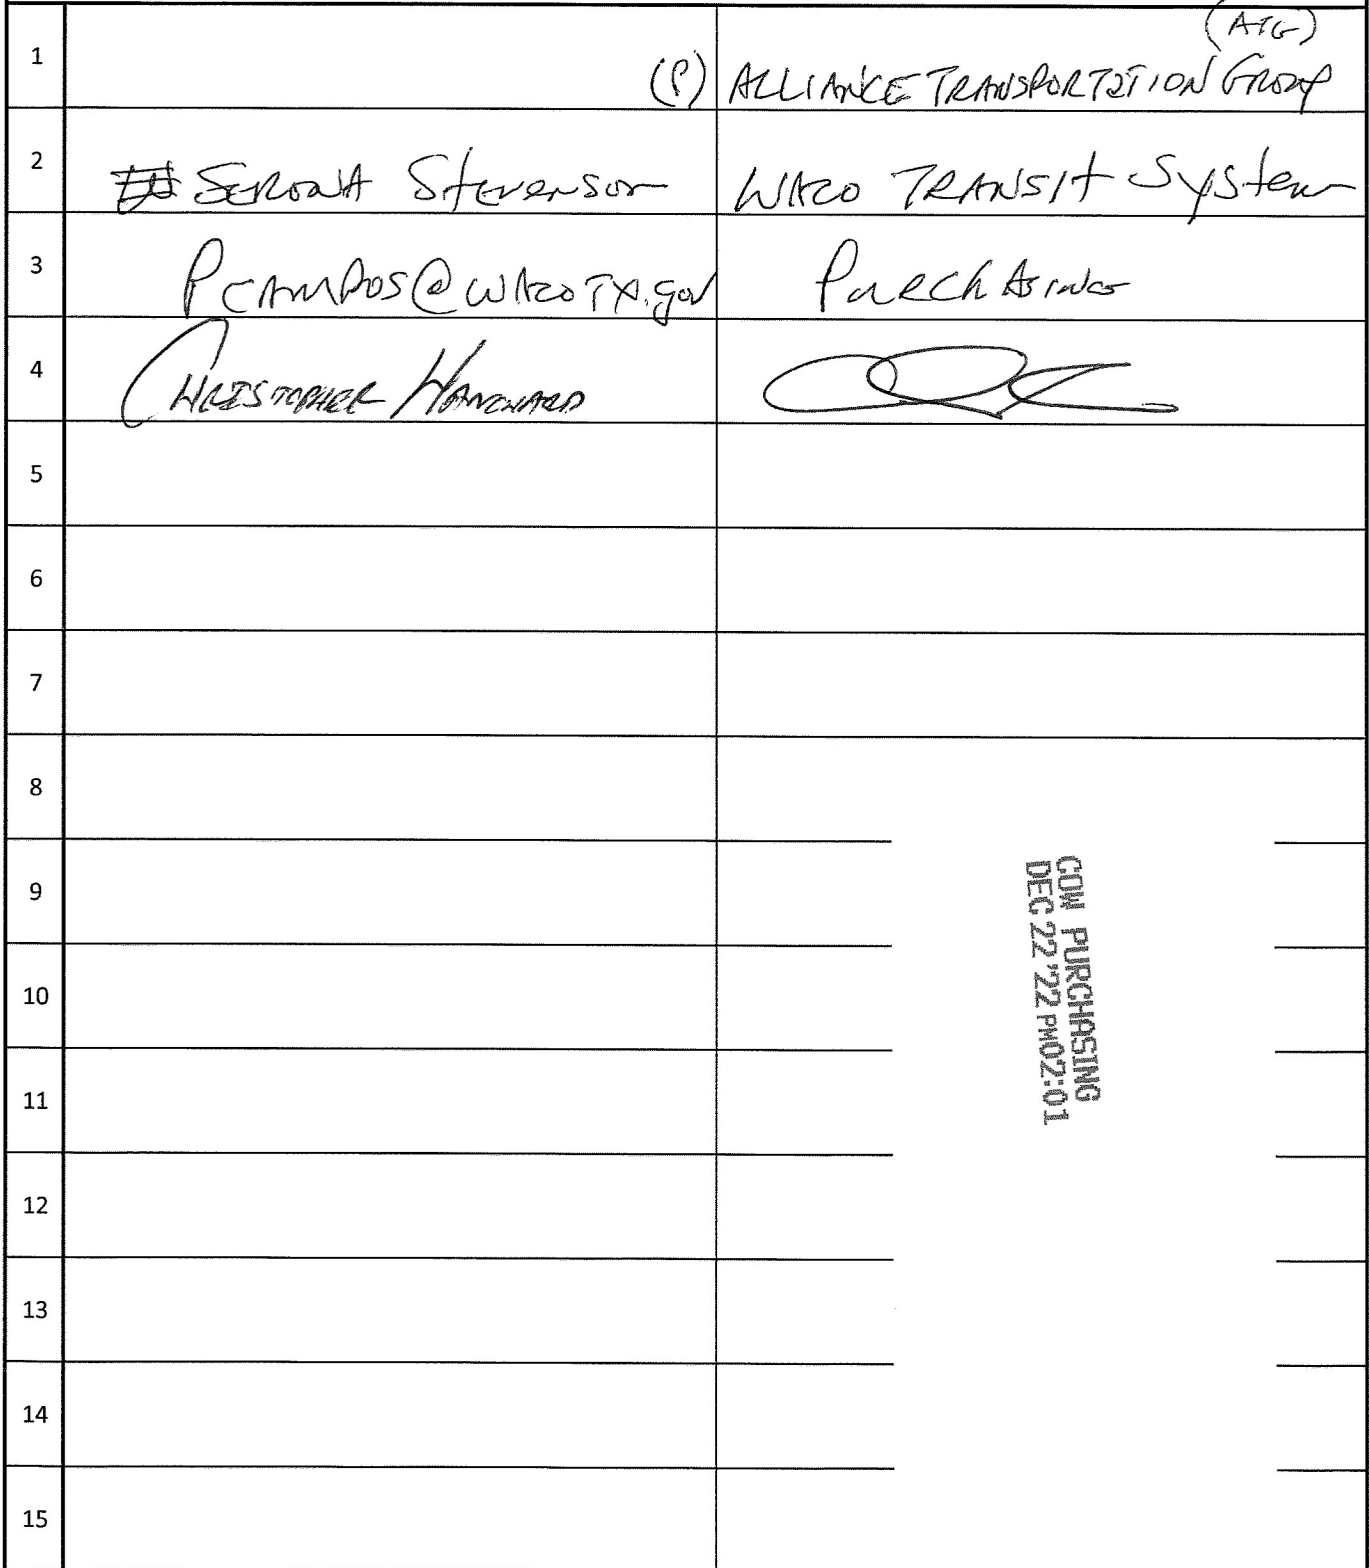 1
(P) ALLIANCE TRANSPORTATION GROUP
(ATG)
2 Stevenson WACO TRANSIT System
3 PCAMPOS@WACOTX.gov PURCHASING
4 CHRISTOPHER
5
6
7
8
9
10
11
12
13
14
15
COW PURCHASING
DEC 22 '22 PM02:01